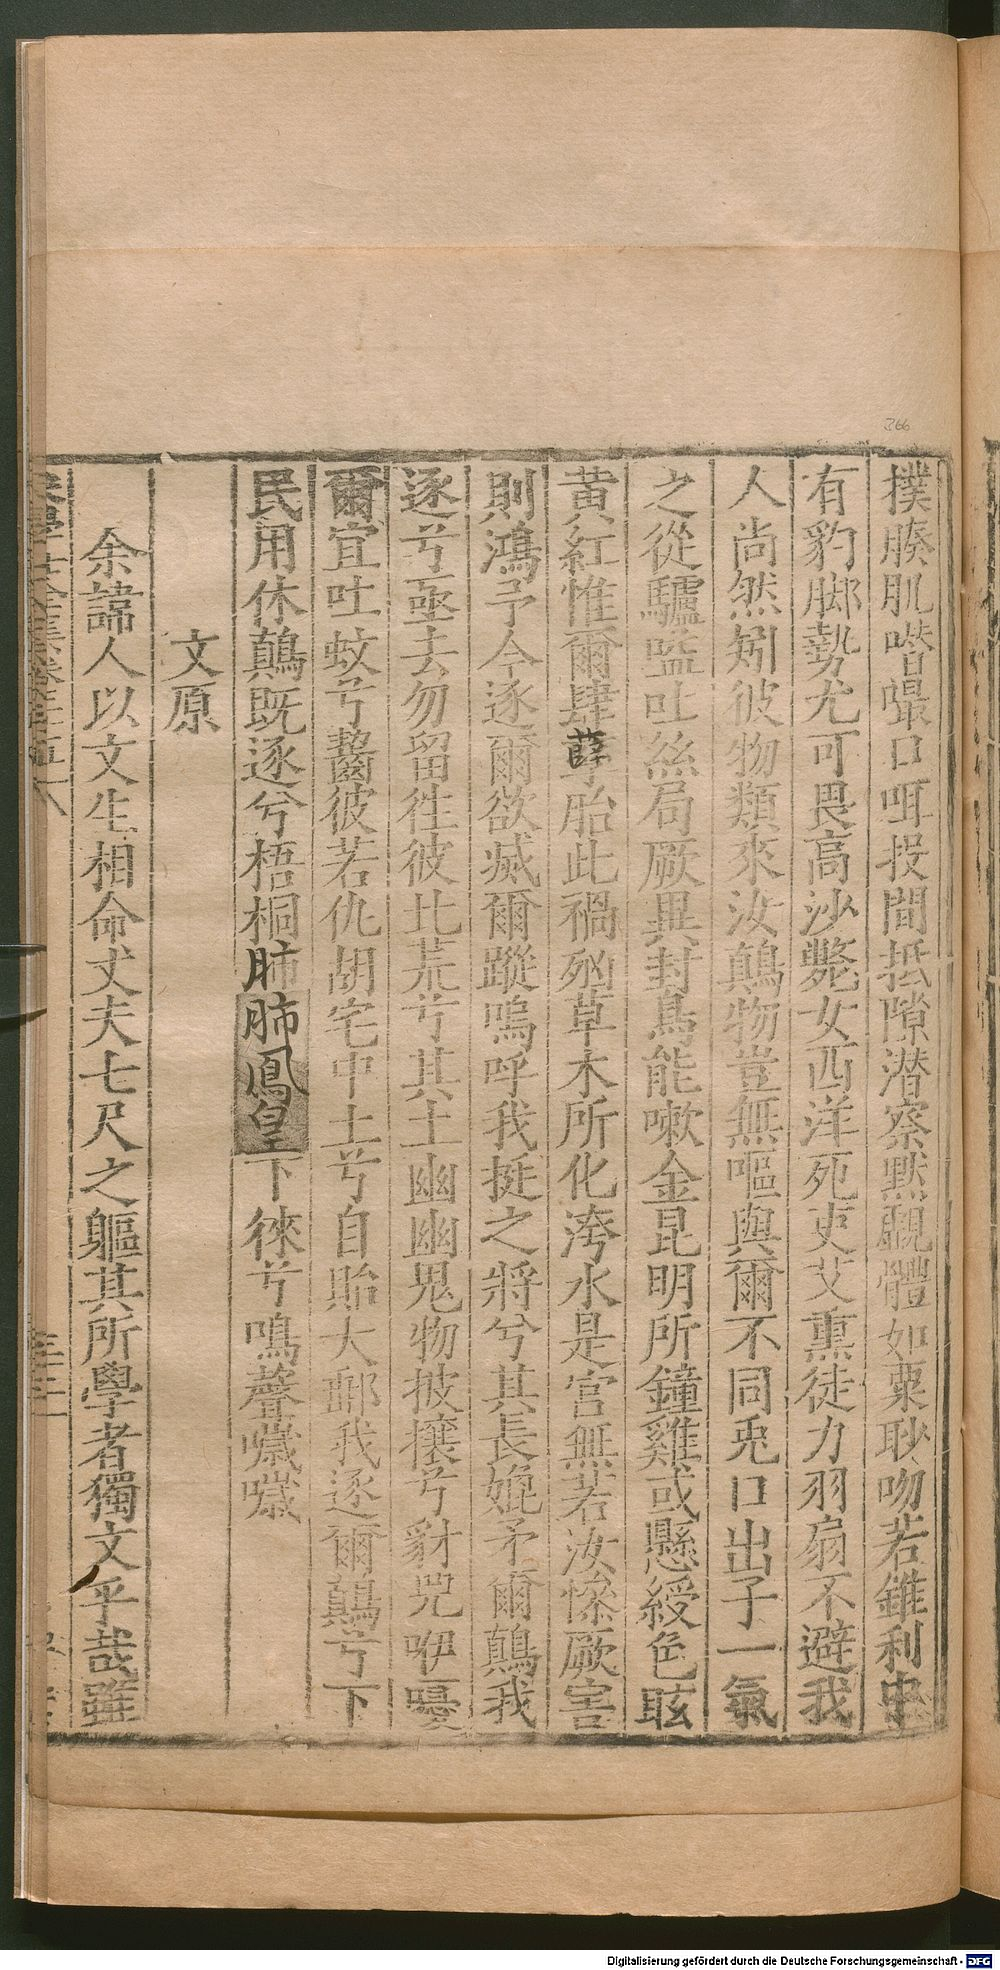 366
撲膝肌噆㗱口咡投間抵隙潜察黙覼體如粟耿吻若錐利中
有豹脚勢尤可畏高沙斃女西洋死吏艾熏徒力羽扇不避我
人尚然矧彼物類來汝鷏物豈無嘔與爾不同兎口出子一氣
之從驢嗌吐絲局厥異封鳥能嗽金昆明所鐘雞或懸綬色眩
黄紅惟爾肆孽胎此禍㐫草木所化洿水是宫無若汝慘厥害
則鴻予今逐爾欲烕爾蹤嗚呼我挺之將兮其長㛱矛爾鷏我
逐兮亟去勿留徃彼北荒兮其土幽幽鬼物披攘兮豺咒咿嚘
爾宜吐蚊兮齧彼若仇胡宅中土兮自貽大郵我逐爾鷏兮下
民用休鷏既逐兮梧桐肺肺鳳皇下徠兮鳴聲噦噦
文原
余諱人以文生相命丈夫七尺之軀其所學者獨文乎哉雖
Digitalisierung gefördert durch die Deutsche Forschungsgemeinschaft - DFG